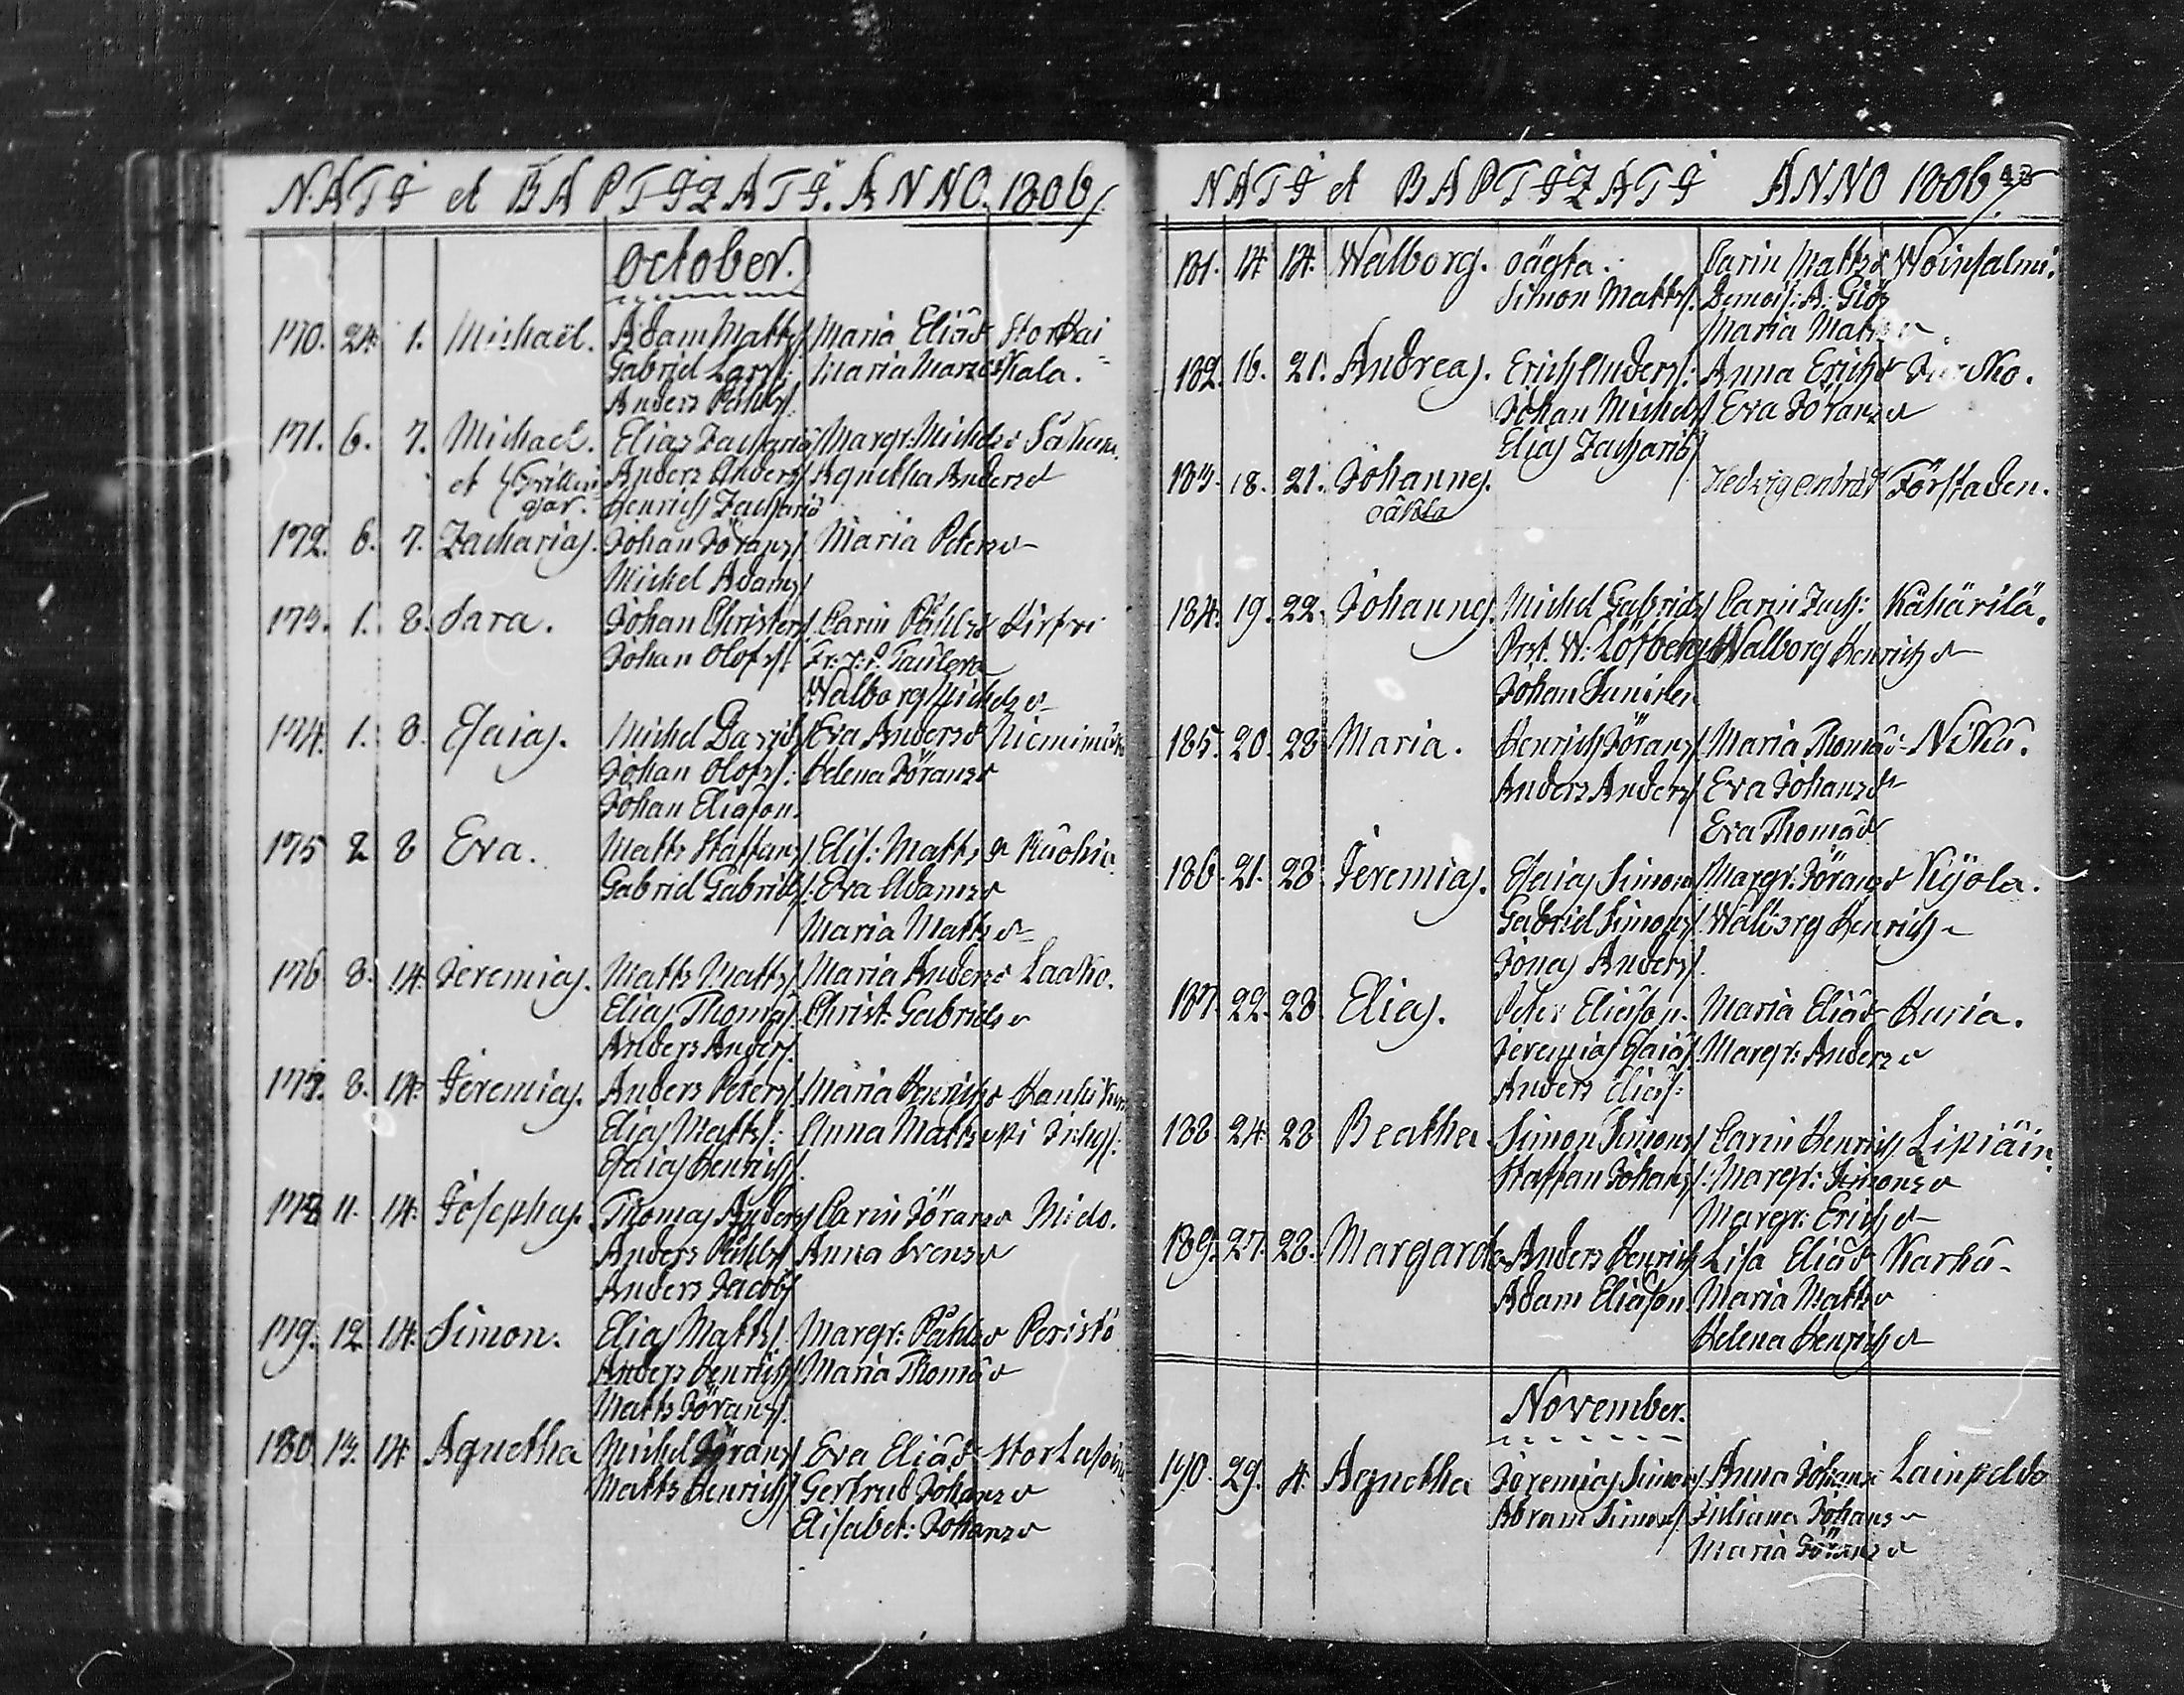 NATI et BAPTIZATI. ANNO. 1806/.
October.
170. 24. 1. Michaël. Adam Matts/. Maria Eliæd. Storkai
Gabriel Larss/: Maria Marcd. Kala.
Anders Påhls/.
171. 6. 7. Michael. Elias Zachariæ Margr: Michelsd
et Tvillin Anders Anders/. Agnetha Andersd
gar. Henrich Zachariæ
172. 6. 7. Zacharias. Johan Jörans/. Maria Petersd
Michel Adams/
173. 1. 8. Sara. Johan Christers/. Carin Påhlsd
Johan Olofs/:
Walborg Michelsd
174. 1. 8. Esaias. Michel Davids/. Eva Andersd
Johan Olofs/: Helena Jöransd
Johan Eliason.
175 2 8 Eva. Matts Staffans/. Elis: Mattsd
Gabriel Gabriels/: Eva Adamsd
Maria Mattsd
176 8. 14. Jeremias. Matts Matts/. Maria Andersd Laako.
Elias Thomas/. Christ: Gabrielsd
Anders Anders/.
177. 8. 14. Jeremias. Anders Peters/. Maria Henrichsd
Elias Matts/: Anna Mattsd
Esaias Henrichs/.
178 11. 14. Josephus. Thomas Anders/ Carin Jöransd
Anders Påhls/ Anna Svensd
Anders Jacobs/
179. 12. 14. Simon. Elias Matts/. Margr: Påhlsd
Anders Henrichs/ Maria Thomæd
Matts Jörans/.
180. 13. 14 Agnetha Michel Jörans/ Eva Eliæd
Matts Henrichs/ Gertrud Johansd
Elisabet: Johansd
NATI et BAPTIZATI ANNO 1806/. 43
181. 14. 14. Walborg. oägta. Carin Mattsd Woinsalmi.
Simon Matts/. Demois: A:
Maria Matsd
182. 16. 21. Andreas. Erich Anders/: Anna Erichsd
Johan Michels/ Eva Jöransd
Elias Zachariæ/
183. 18. 21. Johannes. Hedvig Förstaden.
oäkta
184. 19. 22. Johannes. Michel Gabriels/ Carin Zach: Kähärilä.
Prst. W: Löfberg Walborg Henrichsd
Johan
185. 20. 28 Maria. Henrich Jörans/. Maria Thomæd
Anders Anders/. Eva Johansd
Eva Thomæd
186. 21. 28 Jeremias. Esaias Simons/ Margr: Jöransd
Gabriel Simons/. Walborg Henrichs
Jonas Anders/.
187. 22. 28. Elias. Peter Eliason. Maria Eliæd
Jeremias Esaiæ/. Margr: Andersd
Anders Eliæ/:
188 24. 28 Beatha Simon Simons/ Carin Henrichs.
Staffan Johans/: Margr: Simonsd
Margr: Erichsd
189. 27. 28. Margareta Anders Henrichs Lisa Eliæd Karhu
Adam Eliason. Maria Mattsd
Helena Henrichsd
November.
190. 29. 4. Agnetha Jeremias Simons/ Anna Johans
Abram Simons/. Juliana Johans
Maria Jöransd